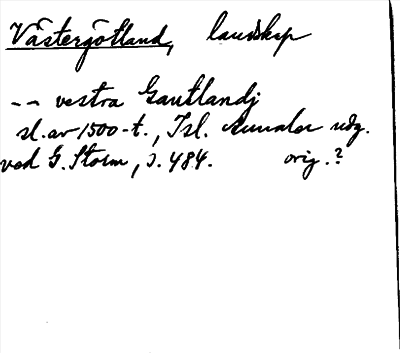 Västergötland, landskap
-- vestra Gautlandj
sl. av 1500-t., Isl. Annaler udg.
ved G. Storm, s. 484. orig.?